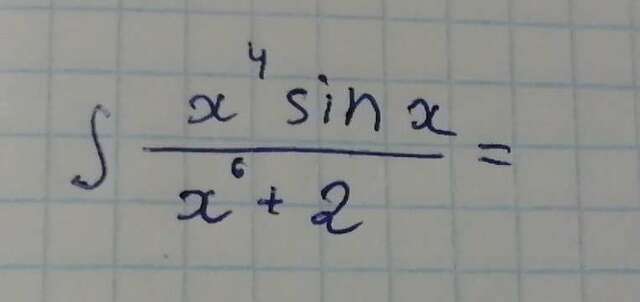 ∫ x⁴ sin x / x⁶ + 2 =